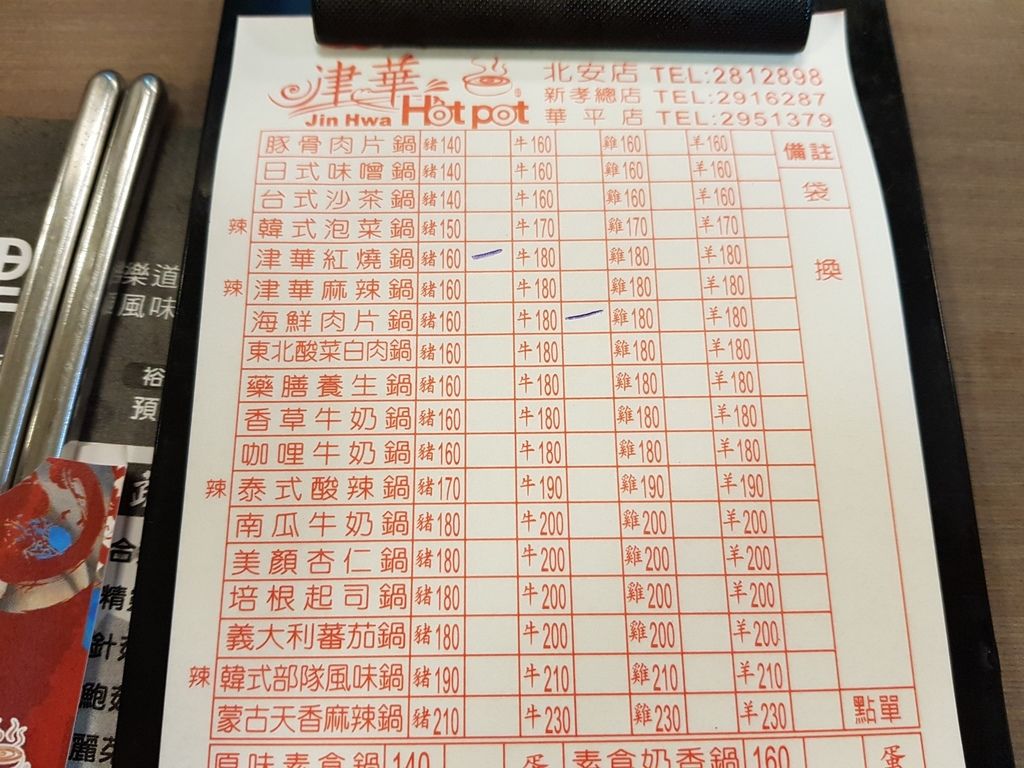 津華 Hot pot
Jin Hwa
北安店 TEL:2812898
新孝總店 TEL:2916287
華平店 TEL:2951379
豚骨肉片鍋 豬140 牛160 雞160 羊160 備註
日式味噌鍋 豬140 牛160 雞160 羊160
台式沙茶鍋 豬140 牛160 雞160 羊160 袋
辣 韓式泡菜鍋 豬150 牛170 雞170 羊170
津華紅燒鍋 豬160 牛180 雞180 羊180 換
辣 津華麻辣鍋 豬160 牛180 雞180 羊180
海鮮肉片鍋 豬160 牛180 雞180 羊180
東北酸菜白肉鍋 豬160 牛180 雞180 羊180
藥膳養生鍋 豬160 牛180 雞180 羊180
香草牛奶鍋 豬160 牛180 雞180 羊180
咖哩牛奶鍋 豬160 牛180 雞180 羊180
辣 泰式酸辣鍋 豬170 牛190 雞190 羊190
南瓜牛奶鍋 豬180 牛200 雞200 羊200
美顏杏仁鍋 豬180 牛200 雞200 羊200
培根起司鍋 豬180 牛200 雞200 羊200
義大利蕃茄鍋 豬180 牛200 雞200 羊200
辣 韓式部隊風味鍋 豬190 牛210 雞210 羊210
蒙古天香麻辣鍋 豬210 牛230 雞230 羊230 點單
原味素食鍋 140 蛋 素食奶香鍋 160 蛋
樂道
風味
裕
預
合
精
針
鮑
麗